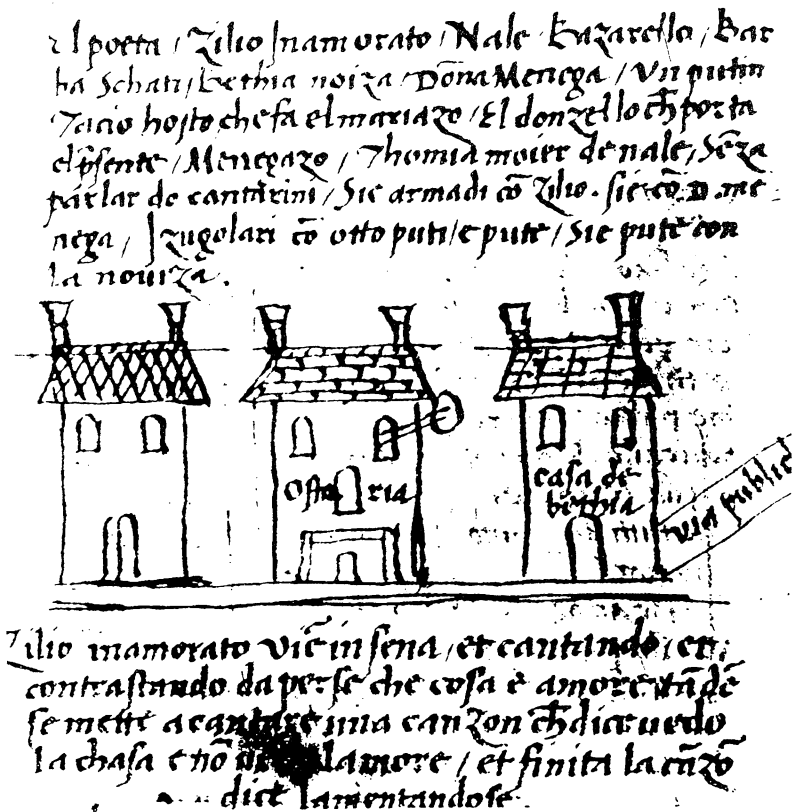 El poeta / Zilio Inamorato / Nale / Bazarello / Bar
ba Schati / Bethia noiza / Dōna Menega / Un putin
Tacio hosto, che fa el mariazo / El donzello ch̄ porta
el p̄sente / Menegazo / Thomia moier de nale / Sēza
parlar de cantarini / Sie armadi cō Zilio. sie cō. D. me
nega / I zugolari cō otto puti / e pute / Sie pute con
la novizā.
Ostaria
casa de
bethia
via public
Zilio inamorato viē in sena / et cantando / et
contrastando da per se che cosa e amore tādē
se mette a cantare una canzon ch̄ dice vedo
la chasa e nō lamore / et finita la cāzō
dice lamentandose.